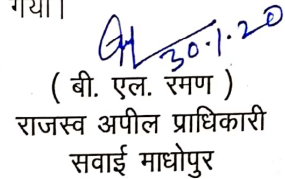 गया।
30.1.20
( बी. एल. रमण )
राजस्व अपील प्राधिकारी
सवाई माधोपुर